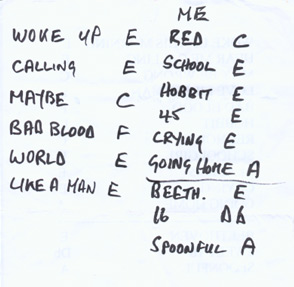 ME
WOKE UP E
CALLING E
MAYBE C
BAD BLOOD F
WORLD E
LIKE A MAN E
RED C
SCHOOL E
HOBBIT E
45 E
CRYING E
GOING HOME A
BEETH. E
16 Ab
SPOONFUL A